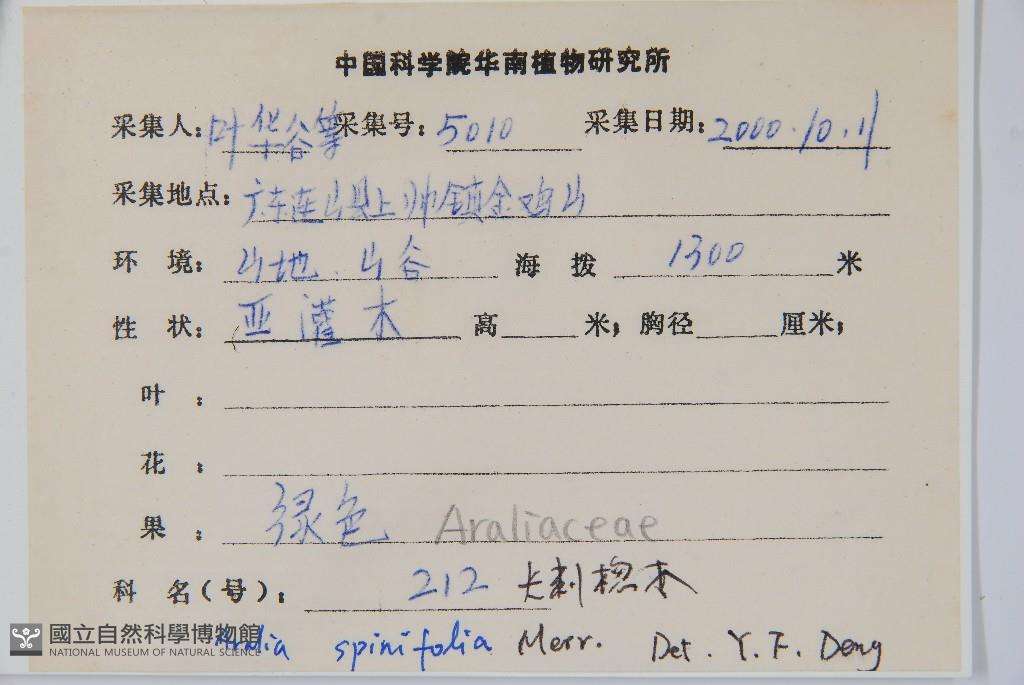 中国科学院华南植物研究所
采集人: 叶华谷等 采集号: 5010 采集日期: 2000.10.11
采集地点: 广东连山县上帅镇金鸡山
环 境: 山地.山谷 海 拨 1300 米
性 状: 亚灌木 高 米; 胸径 厘米;
叶 :
花 :
果 : 绿色 Araliaceae
科 名(号): 212 大刺楤木
Aralia spinifolia Merr. Det. Y. F. Deng
國立自然科學博物館
NATIONAL MUSEUM OF NATURAL SCIENCE